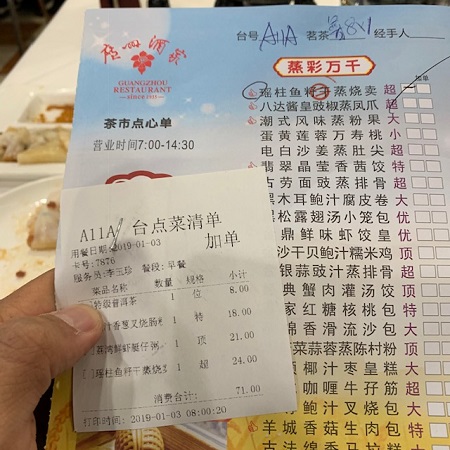 台号 A11A 茗茶 普8×1 经手人
廣州酒家
GUANGZHOU
RESTAURANT
SINCE 1935
茶市点心单
营业时间7:00-14:30
蒸彩万千
加单
瑶柱鱼籽干蒸烧卖 超
八达酱皇豉椒蒸凤爪 超
潮式风味蒸粉果 大
蛋黄莲蓉万寿桃 小
电白沙姜蒸肚尖 超
翡翠晶莹香茜饺 特
古劳面豉蒸排骨 超
木耳鲍汁腐皮卷 超
松露翅汤小笼包 超
鼎鲜味虾饺皇
沙干贝鲍汁糯米鸡 顶
银蒜豉汁蒸排骨 超
典蟹肉灌汤饺 顶
家红糖核桃包 特
绵香滑流沙包 大
菜蒜蓉蒸陈村粉 顶
椰汁枣皇糕 大
咖喱牛孖筋 超
鲍汁叉烧包 大
羊城香菇生肉包 特
古法绵香马拉糕 大
A11A 台点菜清单
加单
用餐日期:2019-01-03
卡号:7876
服务员:李玉珍 餐段:早餐
菜品名称 数量 规格 小计
特级普洱茶 1 位 8.00
汁香葱叉烧肠 1 特 18.00
荔湾鲜虾艇仔粥 1 顶 21.00
瑶柱鱼籽干蒸烧 1 超 24.00
消费合计: 71.00
打印时间: 2019-01-03 08:00:20